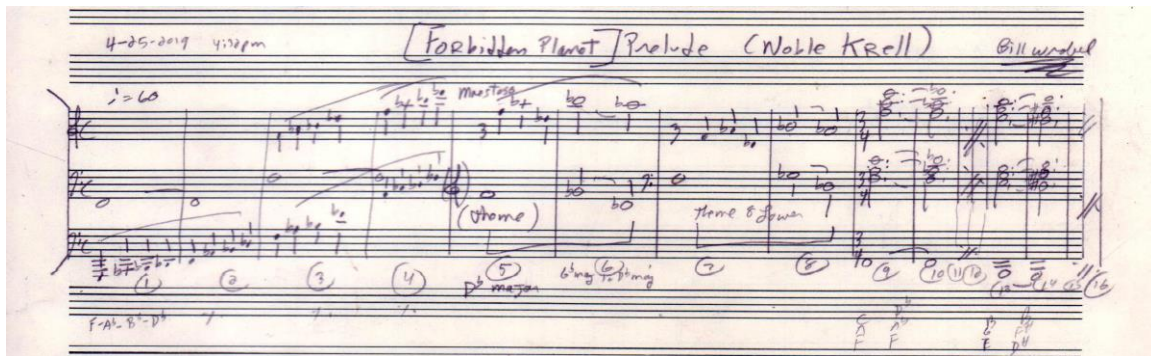 4-25-2019 4:12pm [Forbidden Planet] Prelude (Noble Krell) Bill Wrobel
♩=60 Maestoso
C 3 3 3/4
C 3/4
(theme) theme 8 lower
C 3/4
① ② ③ ④ ⑤ ⑥ ⑦ ⑧ ⑨ ⑩ ⑪ ⑫ ⑬ ⑭ ⑮ ⑯
D♭ major G♭maj to D♭maj
F-A♭-B♭-D♭ ٪ ٪ ٪
C D♭
A A♭
F F